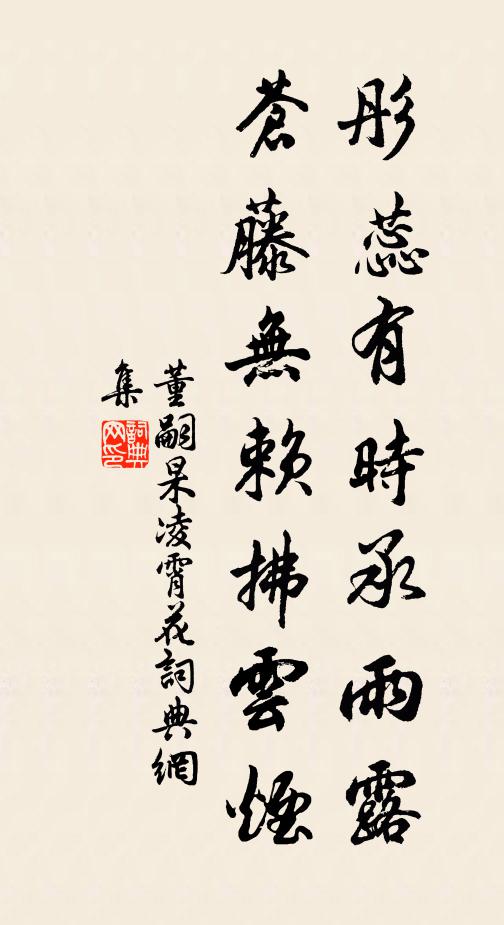 彤蕊有時承雨露
蒼藤無賴拂雲煙
董嗣杲凌霄花詞典網
集
詞典
网印